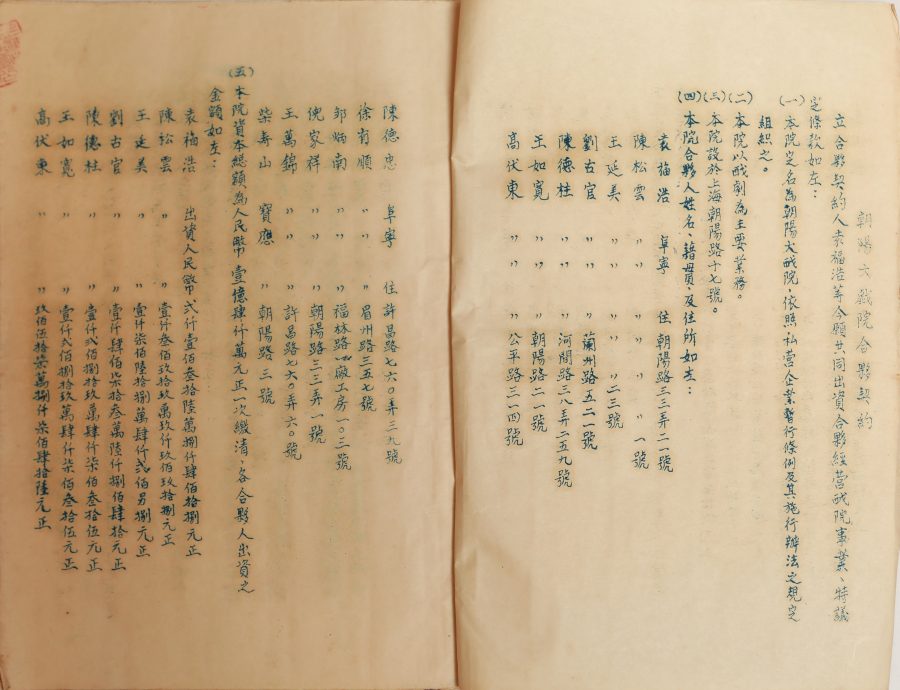 朝陽大戲院合夥契約
立合夥契約人袁福浩等今願共同出資合夥經營戲院事業、特議
定條款如左：
(一)本院定名為朝陽大戲院，依照私營企業暫行條例及其施行辦法之規定
組織之。
(二)本院以戲劇為主要業務。
(三)本院設於上海朝陽路十七號。
(四)本院合夥人姓名、籍貫、及住所如左：
袁福浩 阜寧 住 朝陽路三三弄二一號
陳松雲 〃 〃 〃 〃 一號
王延美 〃 〃 〃 〃 二三號
劉古官 〃 〃 蘭州路五二一號
陳德柱 〃 〃 河間路三八弄二五九號
王如寬 〃 〃 朝陽路二一號
高伏東 〃 〃 公平路三一四號
陳德忠 阜寧 住許昌路七六0弄三九號
徐有順 〃 〃 眉州路三五七號
邹炳南 〃 〃 福林路 廠工房一0三號
倪家祥 〃 〃 朝陽路三三弄一號
王萬錦 〃 〃 許昌路七六0弄六0號
柴壽山 寶應 〃 朝陽路三號
(五)本院資本總額為人民幣壹億肆仟萬元正一次繳清，各合夥人出資之
金額如左：
袁福浩 出資人民幣 弍仟壹佰叁拾陸萬捌仟肆佰拾捌元正
陳松雲 〃 〃 壹仟叁佰玖拾玖萬玖仟玖佰玖拾捌元正
王延美 〃 〃 壹仟柒佰陸拾捌萬肆仟弍佰另捌元正
劉古官 〃 〃 壹仟肆佰柒拾叁萬陸仟捌佰肆拾元正
陳德柱 〃 〃 壹仟弍佰捌拾玖萬肆仟柒佰叁拾伍元正
王如寬 〃 〃 壹仟弍佰捌拾玖萬肆仟柒佰叁拾伍元正
高伏東 〃 〃 玖佰伍拾柒萬捌仟柒佰肆拾陸元正